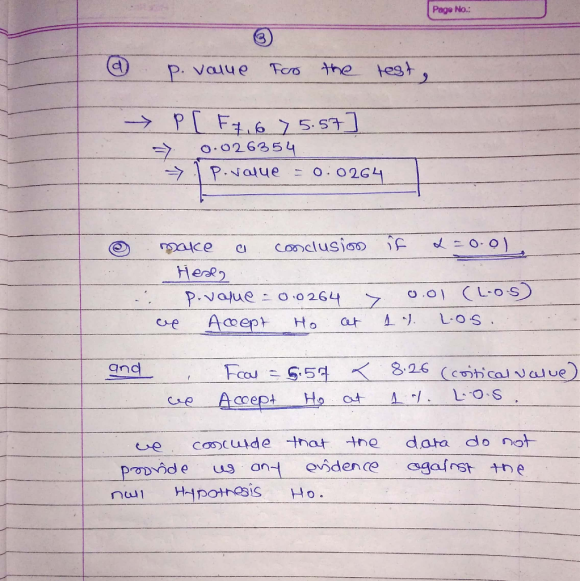 Page No.:
3
d p. value For the test,
→ P[ F7,6 > 5.57 ]
⇒ 0.026354
⇒ P.value = 0.0264
e make a conclusion if α = 0.01,
Here,
∴ P.value = 0.0264 > 0.01 (L.O.S)
we Accept H0 at 1 %. L.O.S.
and , Fcal = 5.57 < 8.26 (critical value)
we Accept H0 at 1 %. L.O.S.
we conclude that the data do not
provide us any evidence against the
null Hypothesis H0.